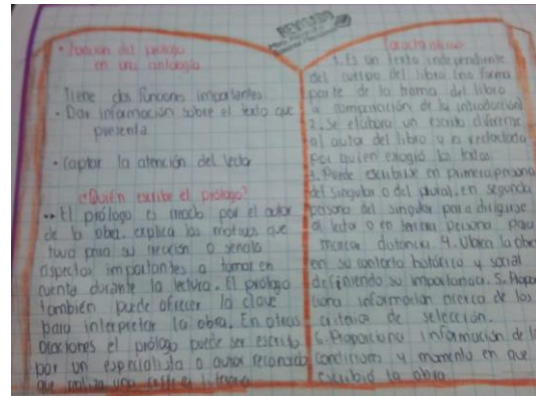 • Función del prólogo
en una antología
Tiene dos funciones importantes.
• Dar información sobre el texto que
presenta
• Captar la atención del lector
¿Quién escribe el prólogo?
•• El prólogo es hecho por el autor
de la obra. explica los motivos que
tuvo para su creación o señala
aspectos importantes a tomar en
cuenta durante la lectura. El prólogo
también puede ofrecer la clave
para interpretar la obra. En otras
ocaciones el prólogo puede ser escrito
por un especialista o autor reconocido
que realiza una
REVISADO
Características
1. Es un texto independiente
del cuerpo del libro (no forma
parte de la trama del libro
a comparación de la introducción)
2. Se elabora un escrito diferente
al autor del libro y la redactada
por quien escogió los textos
3. Puede escribirse en primera persona
del singular o del plural, en segunda
persona del singular para dirigirse
al lector o en tercera persona para
marcar distancia 4. Ubica la obra
en su contexto histórico y social
definiendo su importancia. 5. Propor
ciona información acerca de los
criterios de selección.
6. Proporciona información de la
condiciones y momento en que
escribió la obra